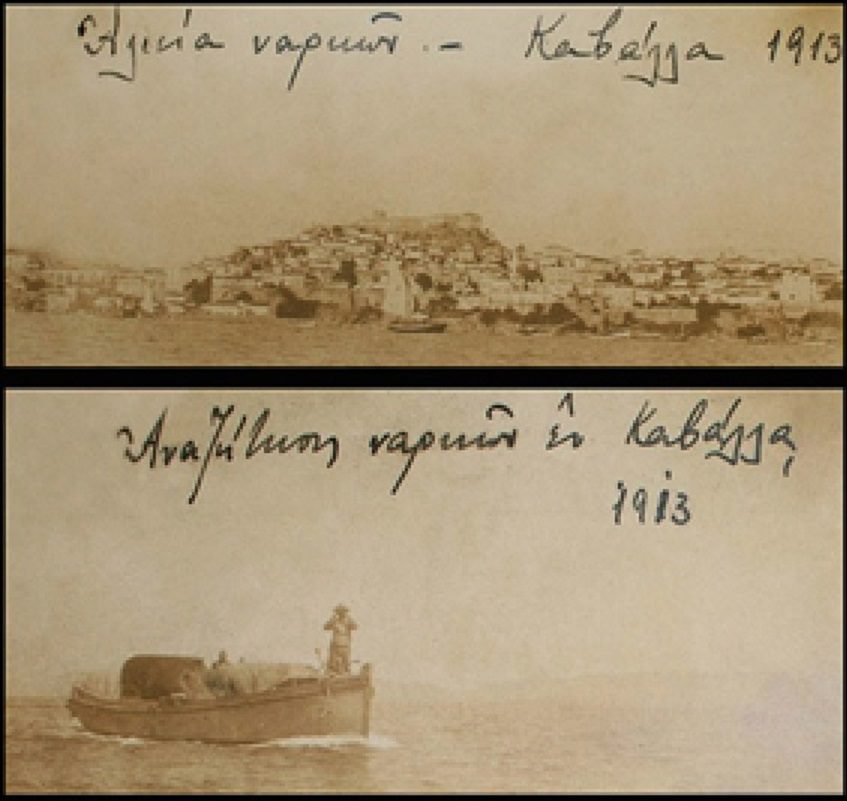 Ἁλιεία ναρκῶν. – Καβάλλα 1913
Ἀναζήτησις ναρκῶν ἐν Καβάλλᾳ,
1913